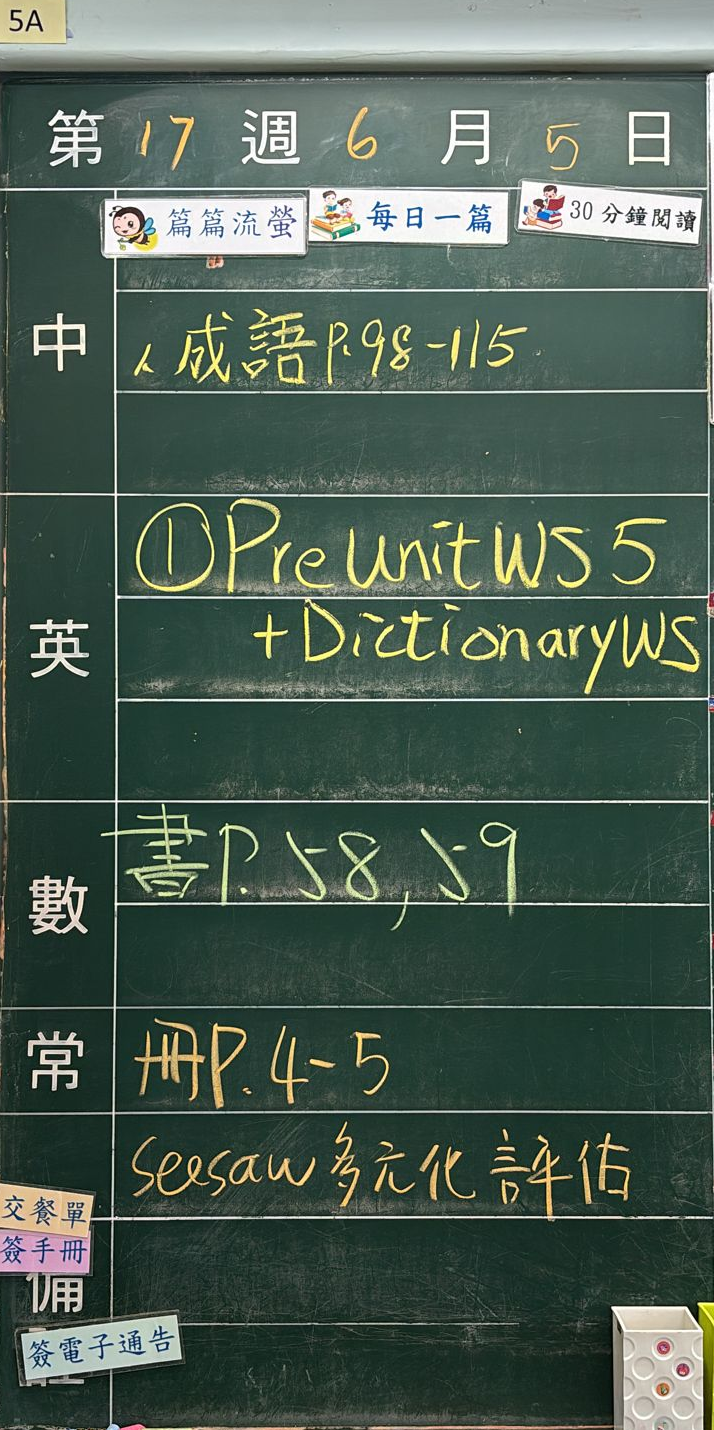 5A
第 17 週 6 月 5 日
篇篇流螢 每日一篇 30 分鐘閱讀
中
成語 P.98-115
英
①Pre Unit WS 5
+Dictionary WS
數
書P. 58, 59
常
冊P. 4-5
seesaw 多元化評估
交餐單
簽手冊
備
簽電子通告